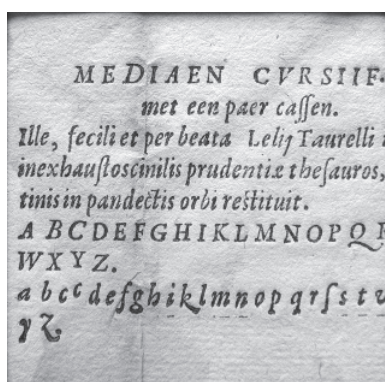 MEDIAEN CVRSIIF.
met een paer caſſen.
Ille, fecili et per beata Lelij Taurelli
inexhauſtoscinilis prudentiæ theſauros,
tinis in pandectis orbi reſtituit.
A B C D E F G H I K L M N O P Q
W X Y Z.
a b c c d e f g h i k l m n o p q r ſ s t v
y z.